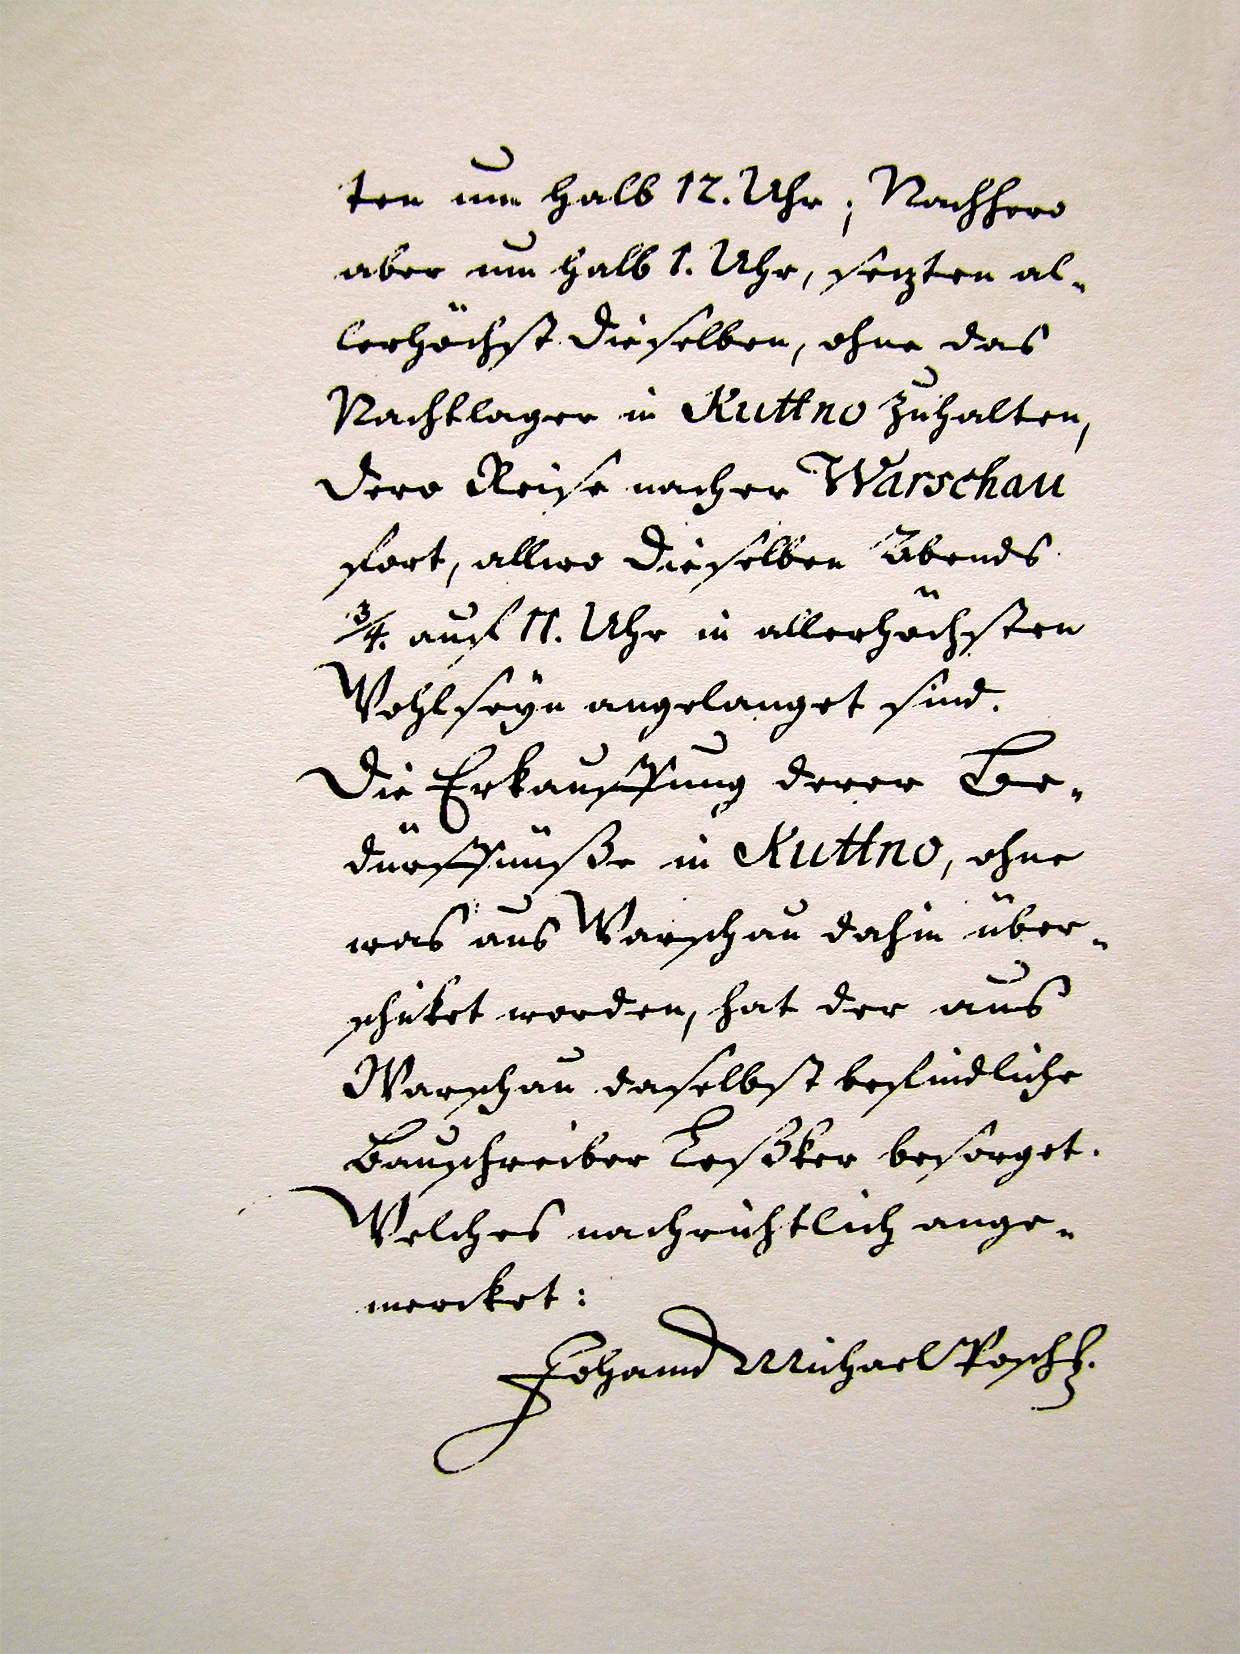 ten um halb 12. Uhr; Nachhero
aber um halb 1. Uhr, setzten al-
lerhöchst dieselben, ohne das
Nachtlager in Kuttno zuhalten,
dero Reise nacher Warschau
fort, allwo dieselben Abends
3/4. auf 11. Uhr in allerhöchsten
Wohlseyn angelanget sind.
Die Erkauffung derer Be-
dürffnüße in Kuttno, ohne
was aus Warschau dahin über-
schiket worden, hat der aus
Warschau daselbst befindliche
Bauschreiber besorget.
Welches nachrichtlich ange-
mercket:
Johann Michael